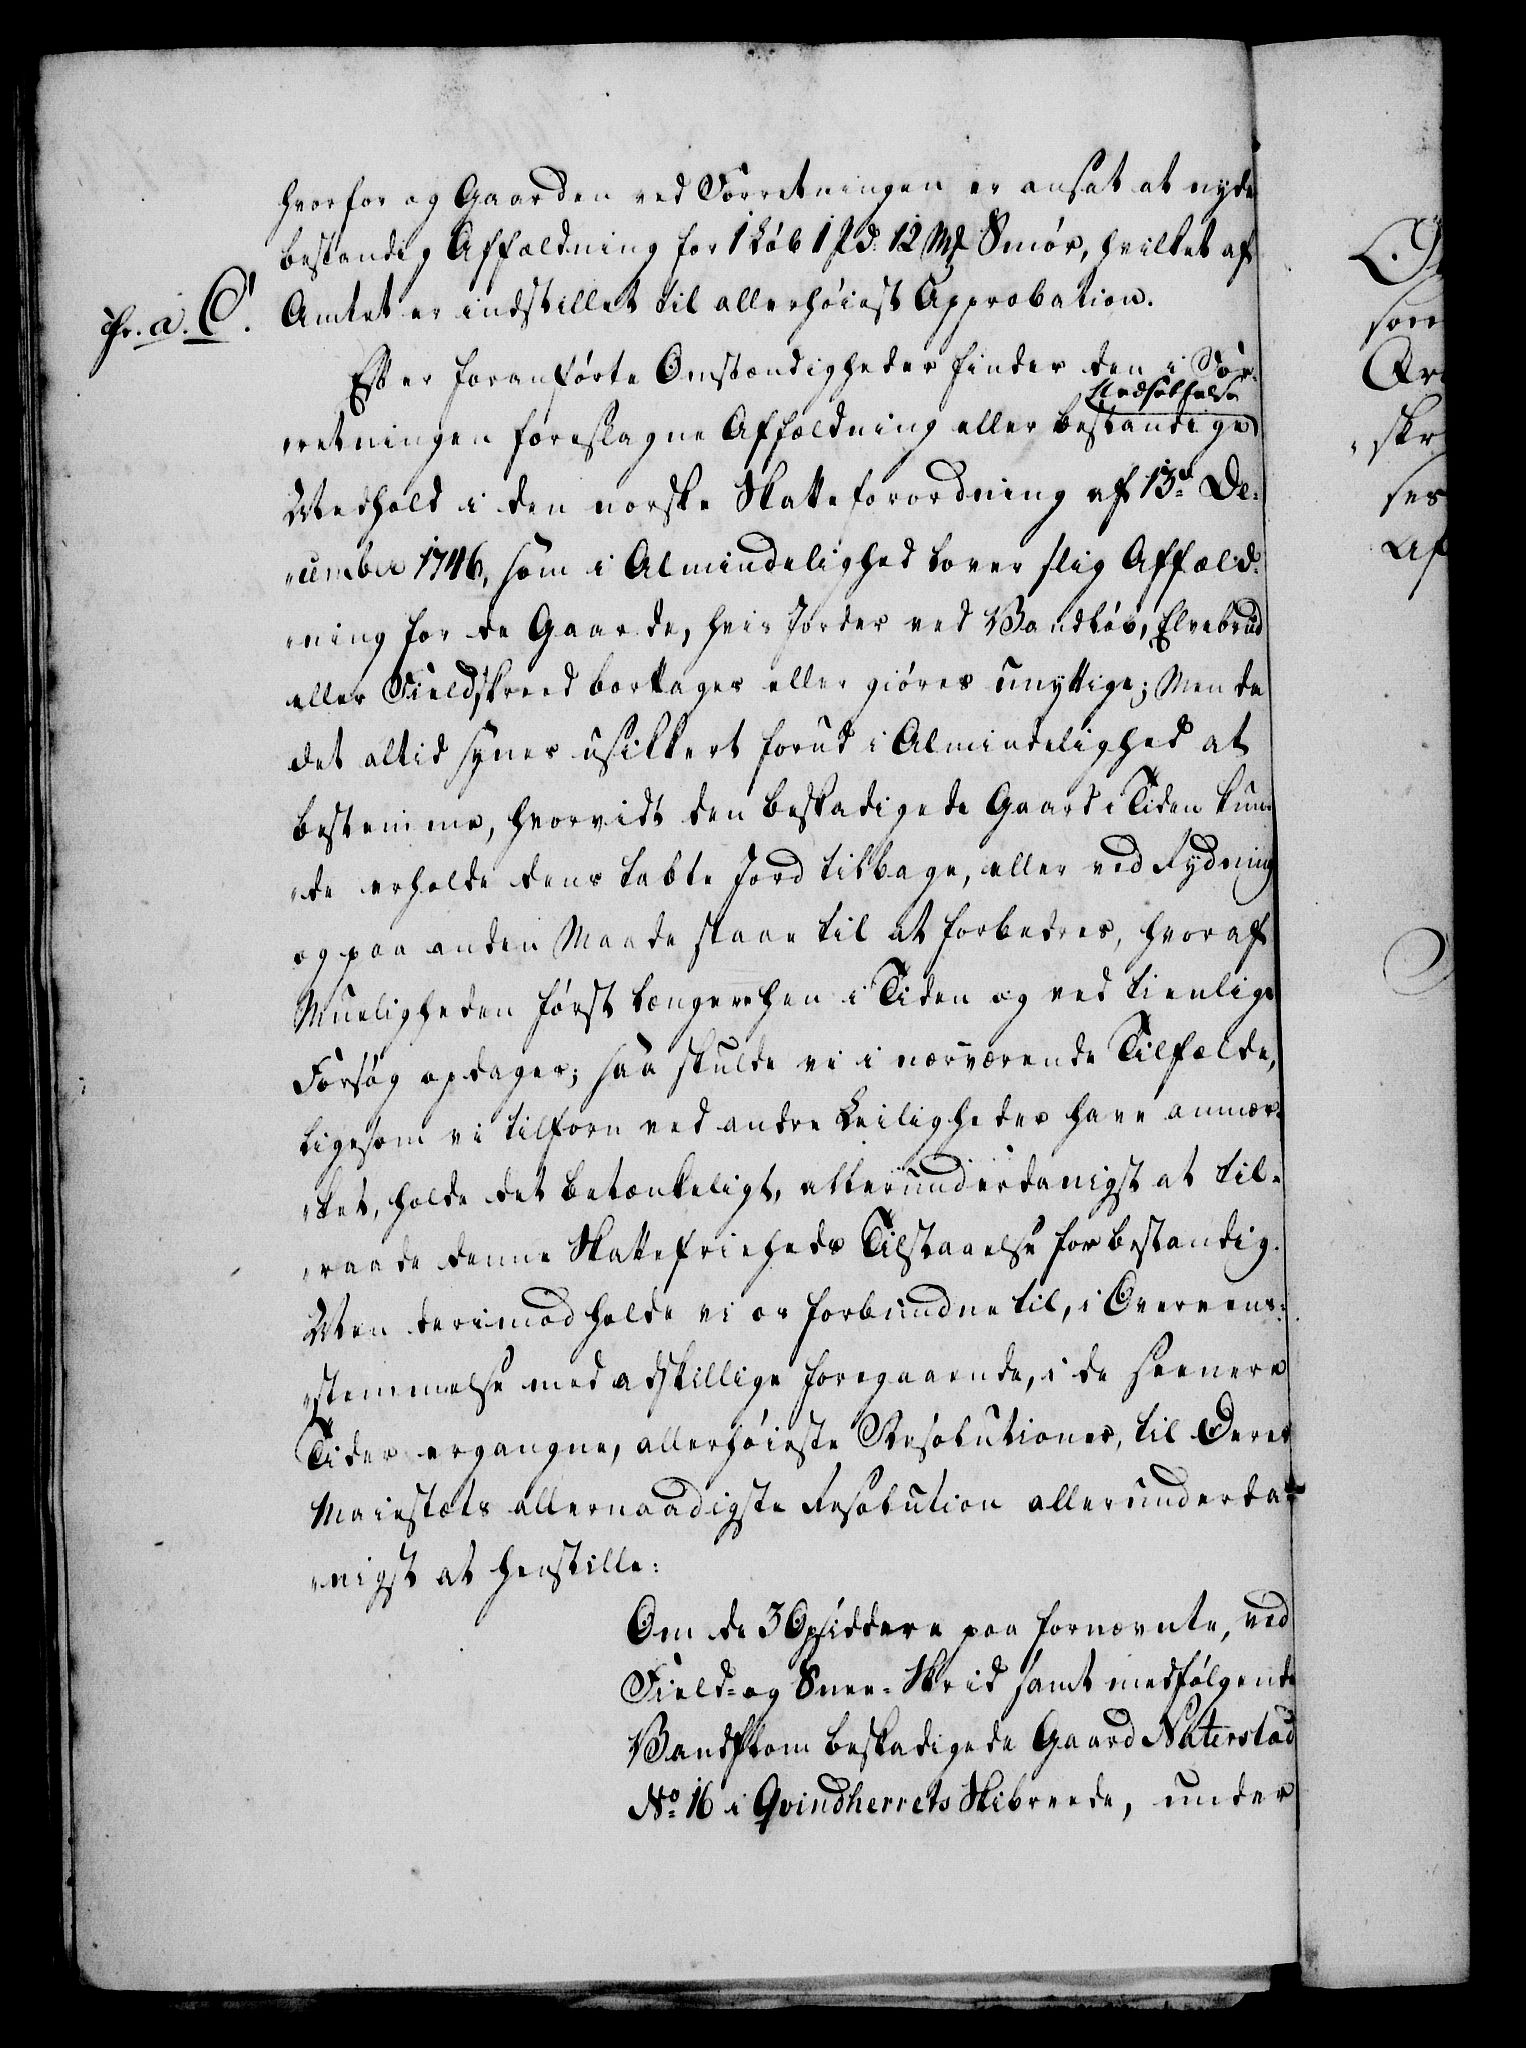 hvorfor og Gaarden ved Forretningen er ansat at nyde
bestandig Affældning for 1 Løb 1 pd: 12 Mk Smör, hvilket af
cfr. a. C. Amtet er indstillet til allerhöiest Approbation.
Efter foranførte Omstændigheder finder den i For-
rretningen foreslagne Affældning eller bestandige Nedsættelse
Medhold i den norske Skatteforordning af 13de De-
cember 1746, som i Almindelighed lover slig Affæld-
ning for de Gaarde, hvis Jorder ved Vandløb, Elvebrud
eller Fieldskreed borttages eller giöres unyttige; Men da
det altid synes usikkert forud i Almindelighed at
bestemme, hvorvidt den beskadigede Gaard i Tiden kun-
de erholde dens tabte Jord tilbage, eller ved Rydning
og paa anden Maade staae til at forbedres, hvoraf
Mueligheden først længere hen i Tiden og ved tienlige
Forsøg opdages; saa skulde vi i nærværende Tilfælde,
ligesom vi tilforn ved andre Leiligheder have anmær-
ket, holde det betænkeligt, allerunderdanigst at til-
raade denne Skattefriheds Tilstaaelse for bestandig.
Men derimod holde vi os forbundne til, i Overeens-
stemmelse med adskillige foregaaende, i de seenere
Tider ergangne, allerhöieste Resolutioner, til Deres
Maiestæts allernaadigste Resolution allerunderda-
nigst at henstille:
Om de 3 Opsiddere paa fornævnte, ved
Field- og Snee-Skrid samt medfølgende
Vandflom beskadigede Gaard Naterstad
No. 16 i Qvindherrets Skibreede, under